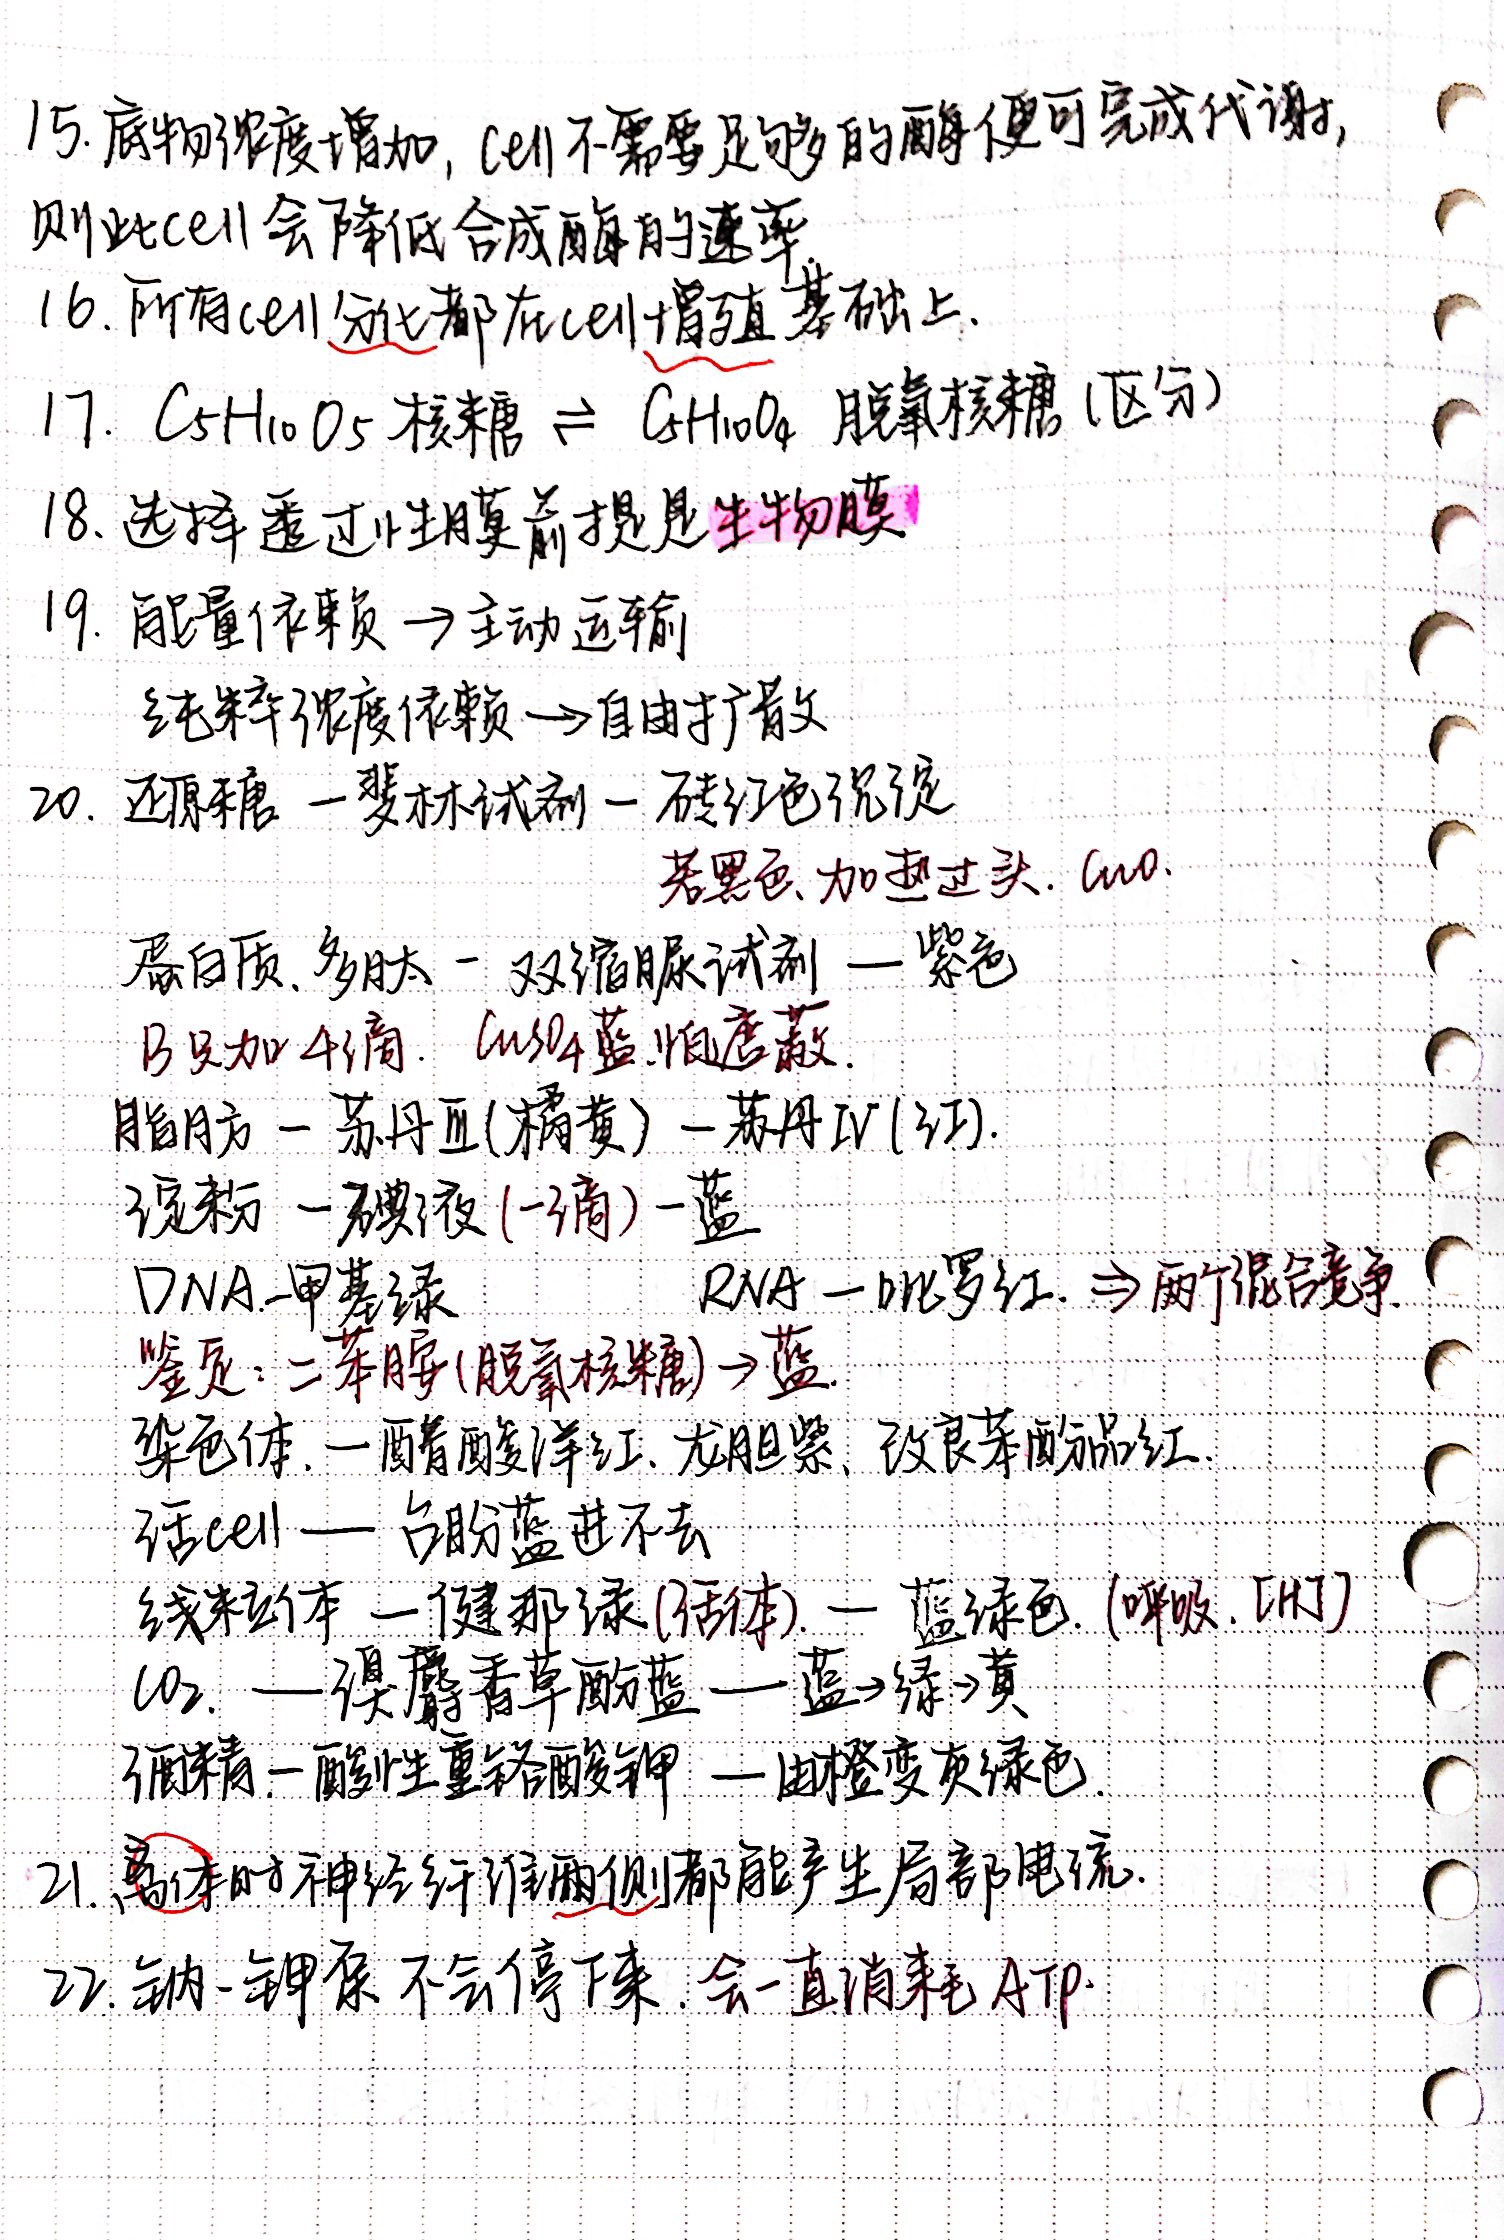 15. 底物浓度增加, cell不需要足够多的酶便可完成代谢,
则此cell会降低合成酶的速率.
16. 所有cell分化都在cell增殖基础上.
17. C₅H₁₀O₅ 核糖 ⇌ C₅H₁₀O₄ 脱氧核糖 (区分)
18. 选择透过性膜前提是生物膜
19. 能量依赖 → 主动运输
纯粹浓度依赖 → 自由扩散
20. 还原糖 — 斐林试剂 — 砖红色沉淀
若黑色、加热过头. CuO.
蛋白质、多肽 — 双缩脲试剂 — 紫色
B只加4滴. CuSO₄蓝.怕遮蔽.
脂肪 — 苏丹Ⅲ(橘黄) — 苏丹Ⅳ(红).
淀粉 — 碘液(一滴) — 蓝
DNA.—甲基绿 RNA — 吡罗红. ⇒ 两个混合竞争.
鉴定: 二苯胺(脱氧核糖) → 蓝.
染色体. — 醋酸洋红、龙胆紫、改良苯酚品红.
活cell — 台盼蓝进不去
线粒体 — 健那绿(活体). — 蓝绿色. (呼吸. [H])
CO₂. — 溴麝香草酚蓝 — 蓝→绿→黄
酒精. — 酸性重铬酸钾 — 由橙变灰绿色.
21. 离体时神经纤维两侧都能产生局部电流.
22. 钠-钾泵不会停下来. 会一直消耗ATP.